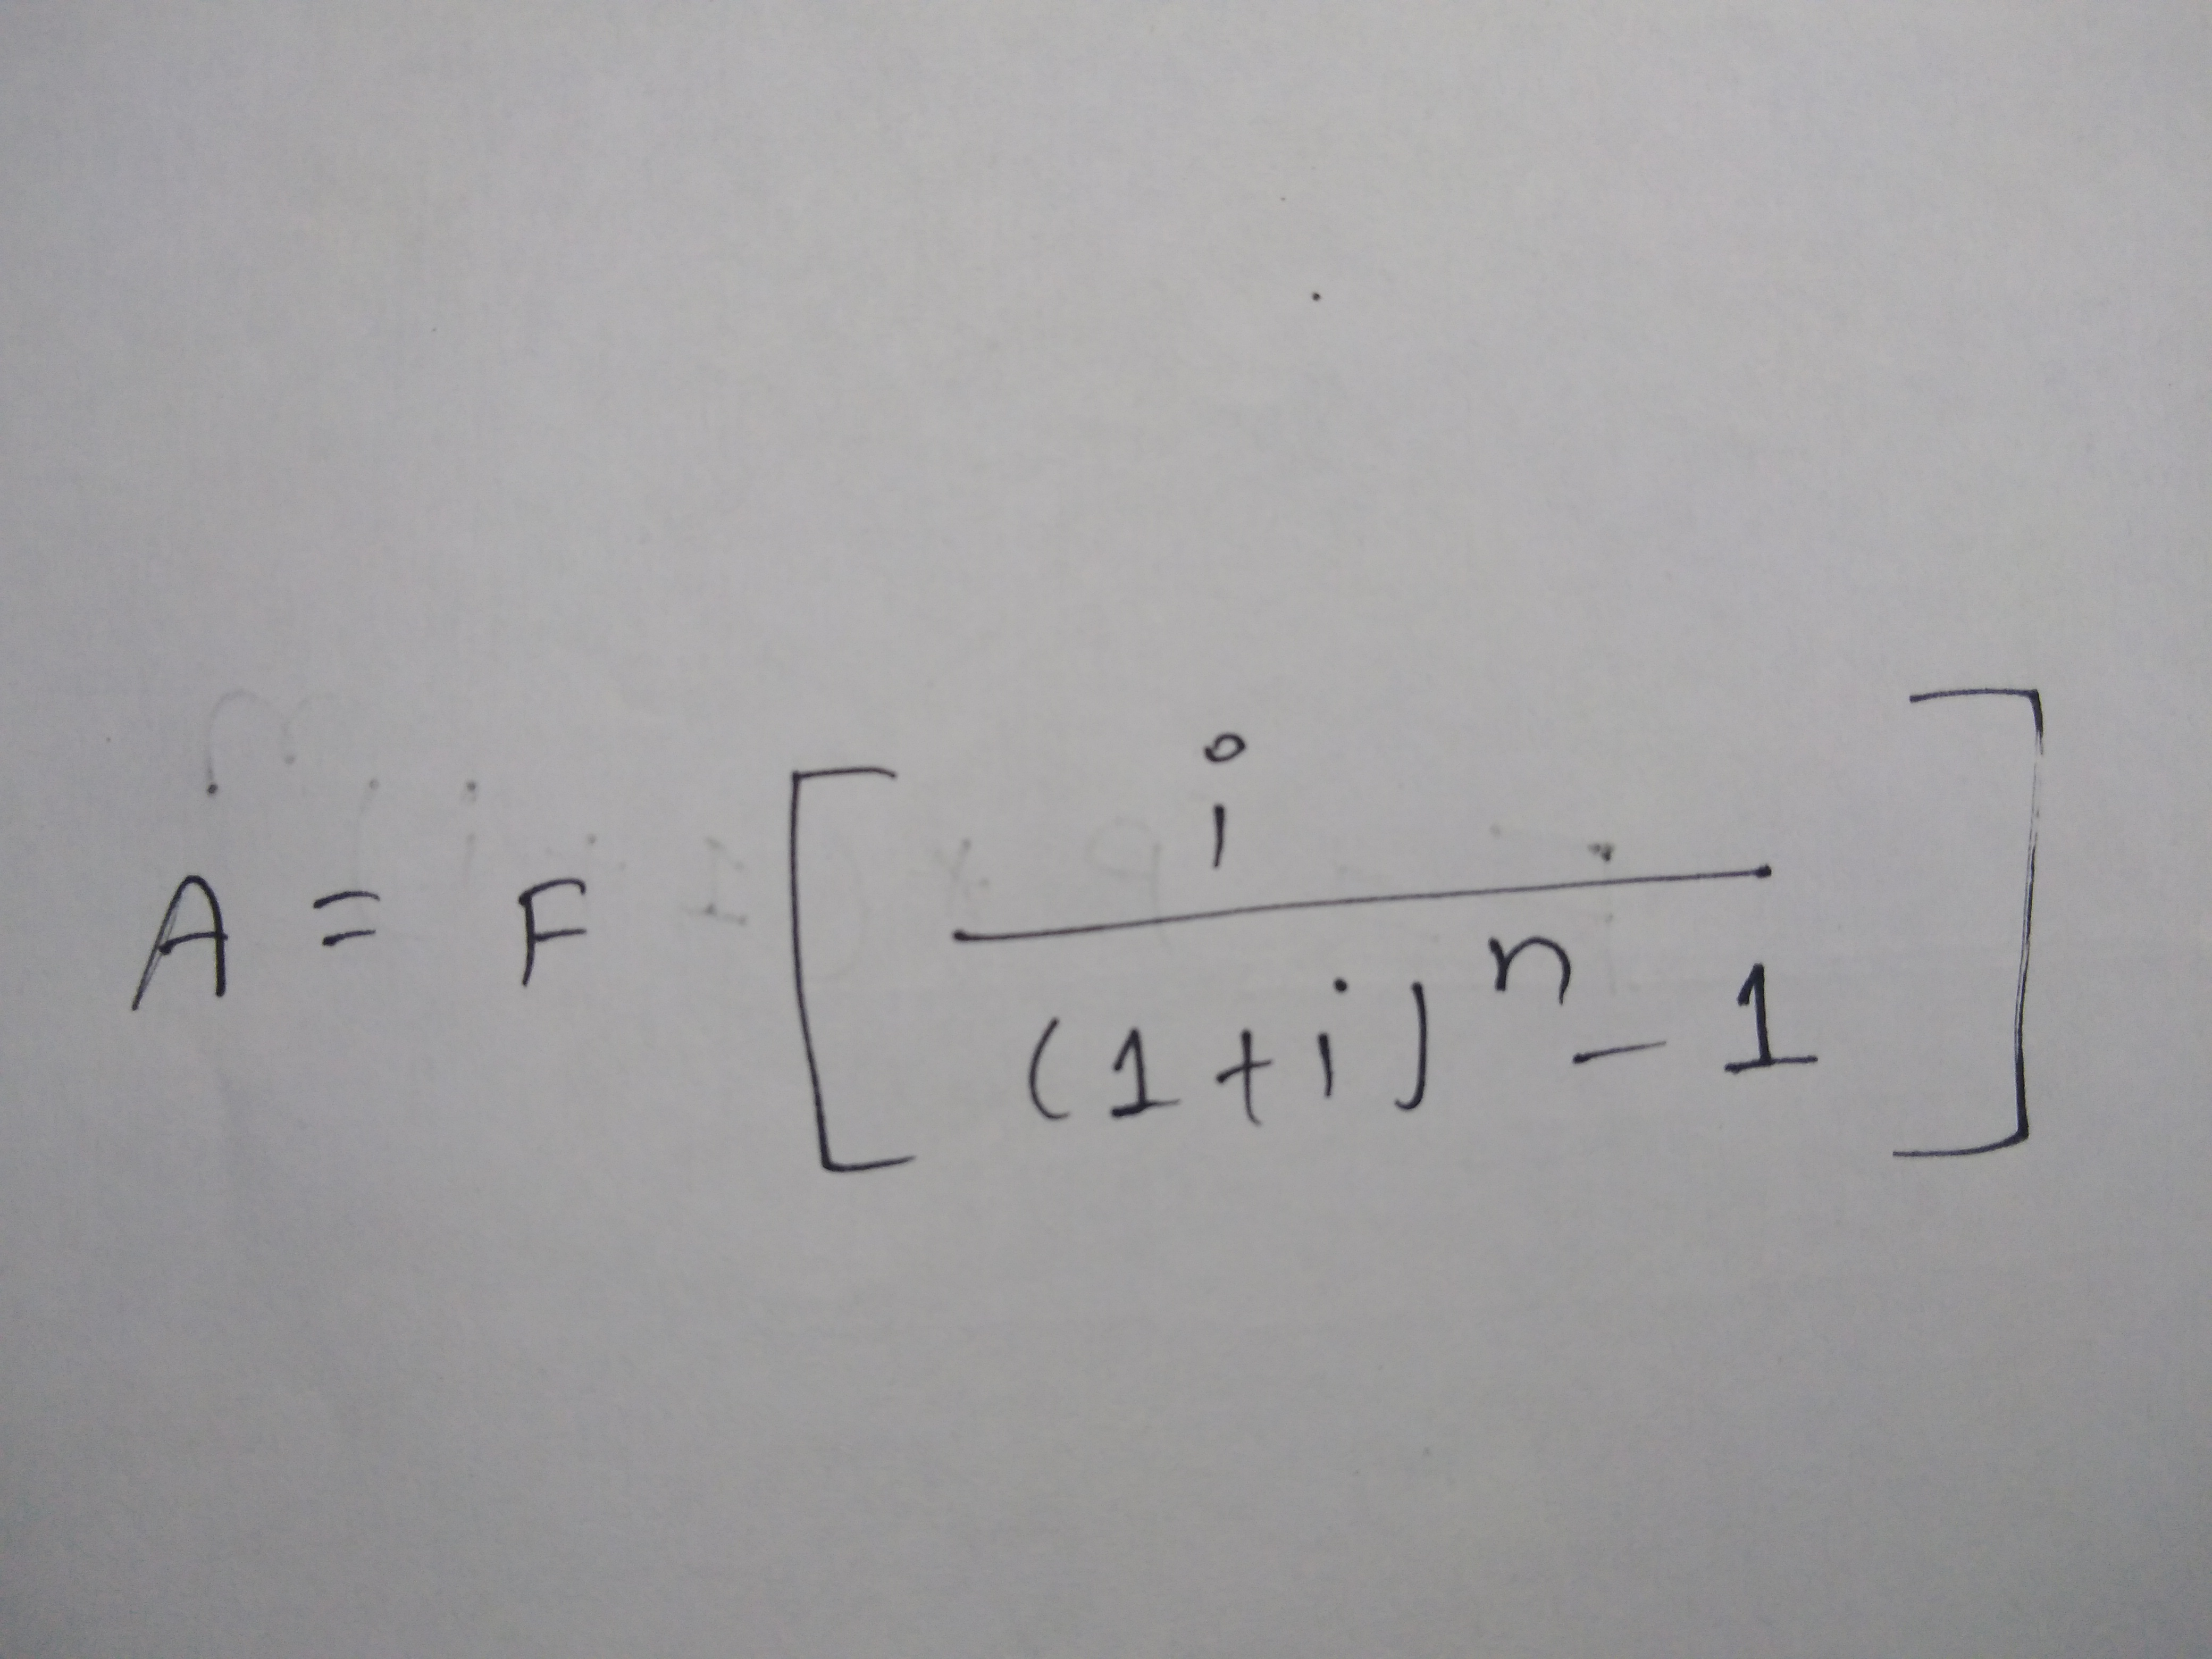 A = F [ i / (1+i)^n - 1 ]